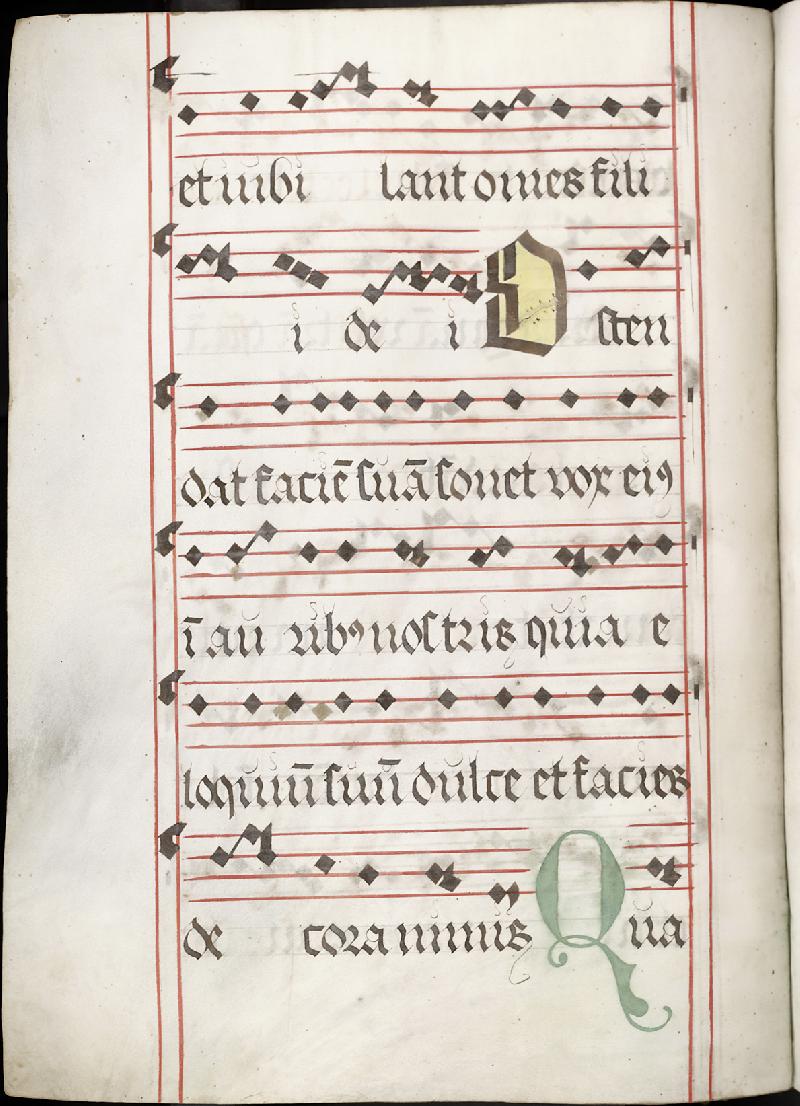 et iubi lant omes fili
i de i O sten
dat faciē suā sonet vox eiꝰ
ī au ribꝰ nostris quia e
loquiū suū dulce et facies
de cora nimis Q ua